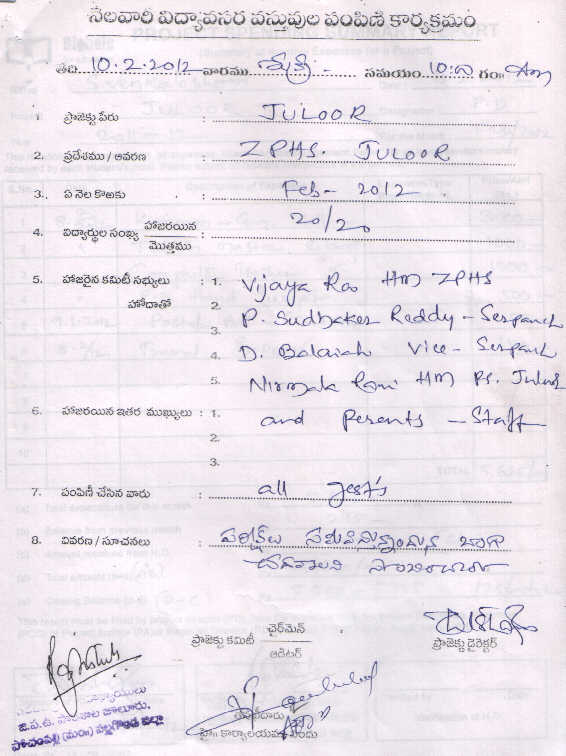 నెలవారి విద్యావసర వస్తువుల పంపిణి కార్యక్రమం
తేది. 10.2.2012 వారము శుక్ర సమయం. 10:00 గం॥ Am
1. ప్రాజెక్టు పేరు : JULOOR
2. ప్రదేశము / ఆవరణ : ZPHS. JULOOR
3. ఏ నెల కొఱకు : Feb - 2012
4. విద్యార్థుల సంఖ్య హాజరయిన / మొత్తము : 20/20
5. హాజరైన కమిటీ సభ్యులు : 1. Vijaya Rao HM ZPHS
హోదాతో 2.
3. P. Sudhaker Reddy - Serpanch
4. D. Balaiah Vice - Serpanch
5. Nirmala Rani HM PS. Juloor
6. హాజరయిన ఇతర ముఖ్యులు : 1. and Perents - Staff
2.
3.
7. పంపిణీ చేసిన వారు : all
8. వివరణ / సూచనలు : పరీక్షలు సమీపిస్తున్నందున బాగా
చదవాలని సూచించడం
ప్రాజెక్టు కమిటీ చైర్‌మెన్ / ఆడిటర్
ప్రాజెక్టు డైరెక్టర్
జి.ప.ఉ. పాఠశాల జూలూరు.
పోచంపల్లి (మం॥) నల్లగొండ జిల్లా